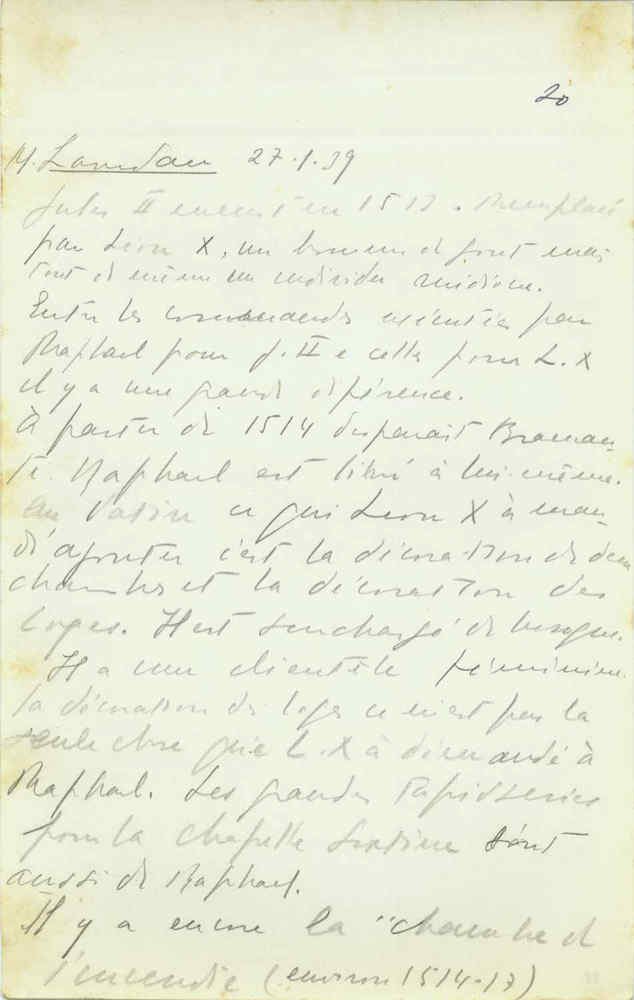 20
M. Landau 27.1.39
Jules II meurt en 1513. Remplacé
par Léon X, un homme de goût mais
tout de même un individu médiocre.
Entre les commandes exécutées par
Raphael pour J. II e celles pour L. X
il y a une grande diférence.
À partir de 1514 disparait Braman-
te. Raphael est livré à lui-même.
Au Vatican ce qui Leon X à man-
dé ajouter c'est la décoration de deux
chambres et la décoration des
loges. Il est surchargé de besogne.
Il a une clientèle féminine.
la décoration des loges ce n'est pas la
seule chose que L. X à demandé à
Raphael. Les grandes tapisseries
pour la chapelle Sixtine sont
aussi de Raphael.
Il y a encore la "chambre de
l'incendie (environ 1514-17)